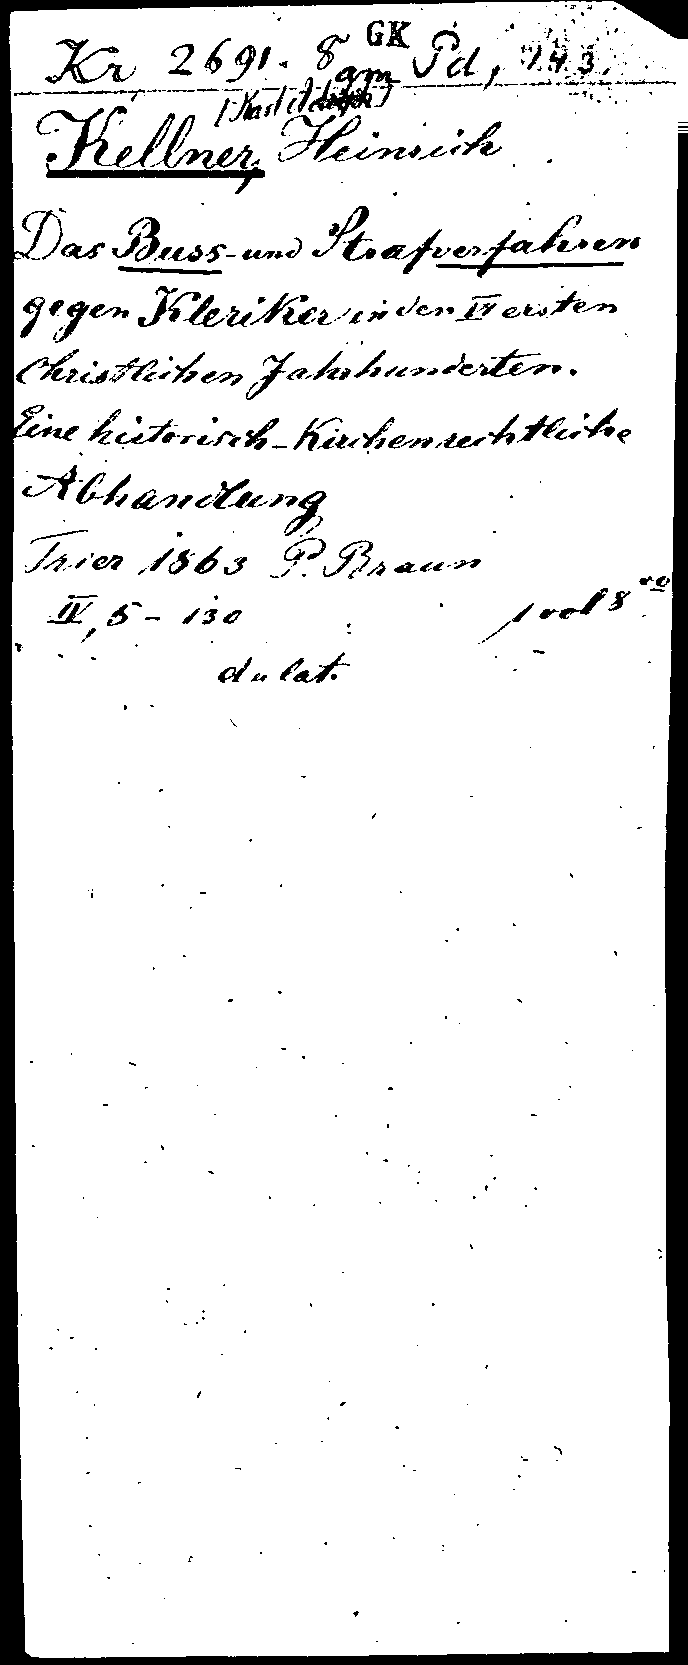 Kr, 2691. 8 GK Pd, 743.
gm
Kellner, Heinrich
Das Buss- und Strafverfahren
gegen Kleriker in den IV ersten
christlichen Jahrhunderten.
Eine historisch-Kirchenrechtliche
Abhandlung
Trier 1863 P. Braun
IV, 5 - 130 1 vol 8vo
du lat.